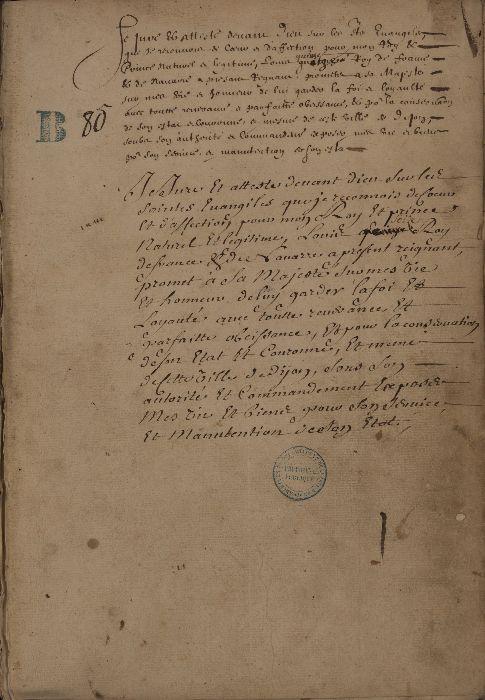 Je Jure et atteste devant Dieu sur les Stes Evangiles
que Je recounois de Coeur et d'affection pour mon Roy et
Prince Naturel et legitime, Louis Roy de France
et de Navarre a present Regnant, promets a sa Majesté
sur mes vie et honneur de lui garder la foi et loyaulté
avec toutte reverance et parfaitte obeissance, et pour la conservation
de son estat et Couronne, et mesme de cette ville de Dijon,
soubs son authorité et Commandement exposer mes vie et biens
pour son service et manutention de son estat
B
86
Je Jure et atteste devant dieu sur les
saintes Evangiles que je reconnois de Coeur
et d'affection pour mon Roy et prince
Naturel et legitime, Louis seize Roy
de france et de Navarre a present reignant,
promet à sa Majesté sur mes vie
et honneur de luy garder la foi et
Loyauté avec toutte reverance et
parfaitte obeissance, et pour la conservation
de son Etat et Couronne, et meme
de cette ville de Dijon, sous son
autorité et Commandement exposer
Mes vie et biens pour son service,
et Manutention de son Etat,